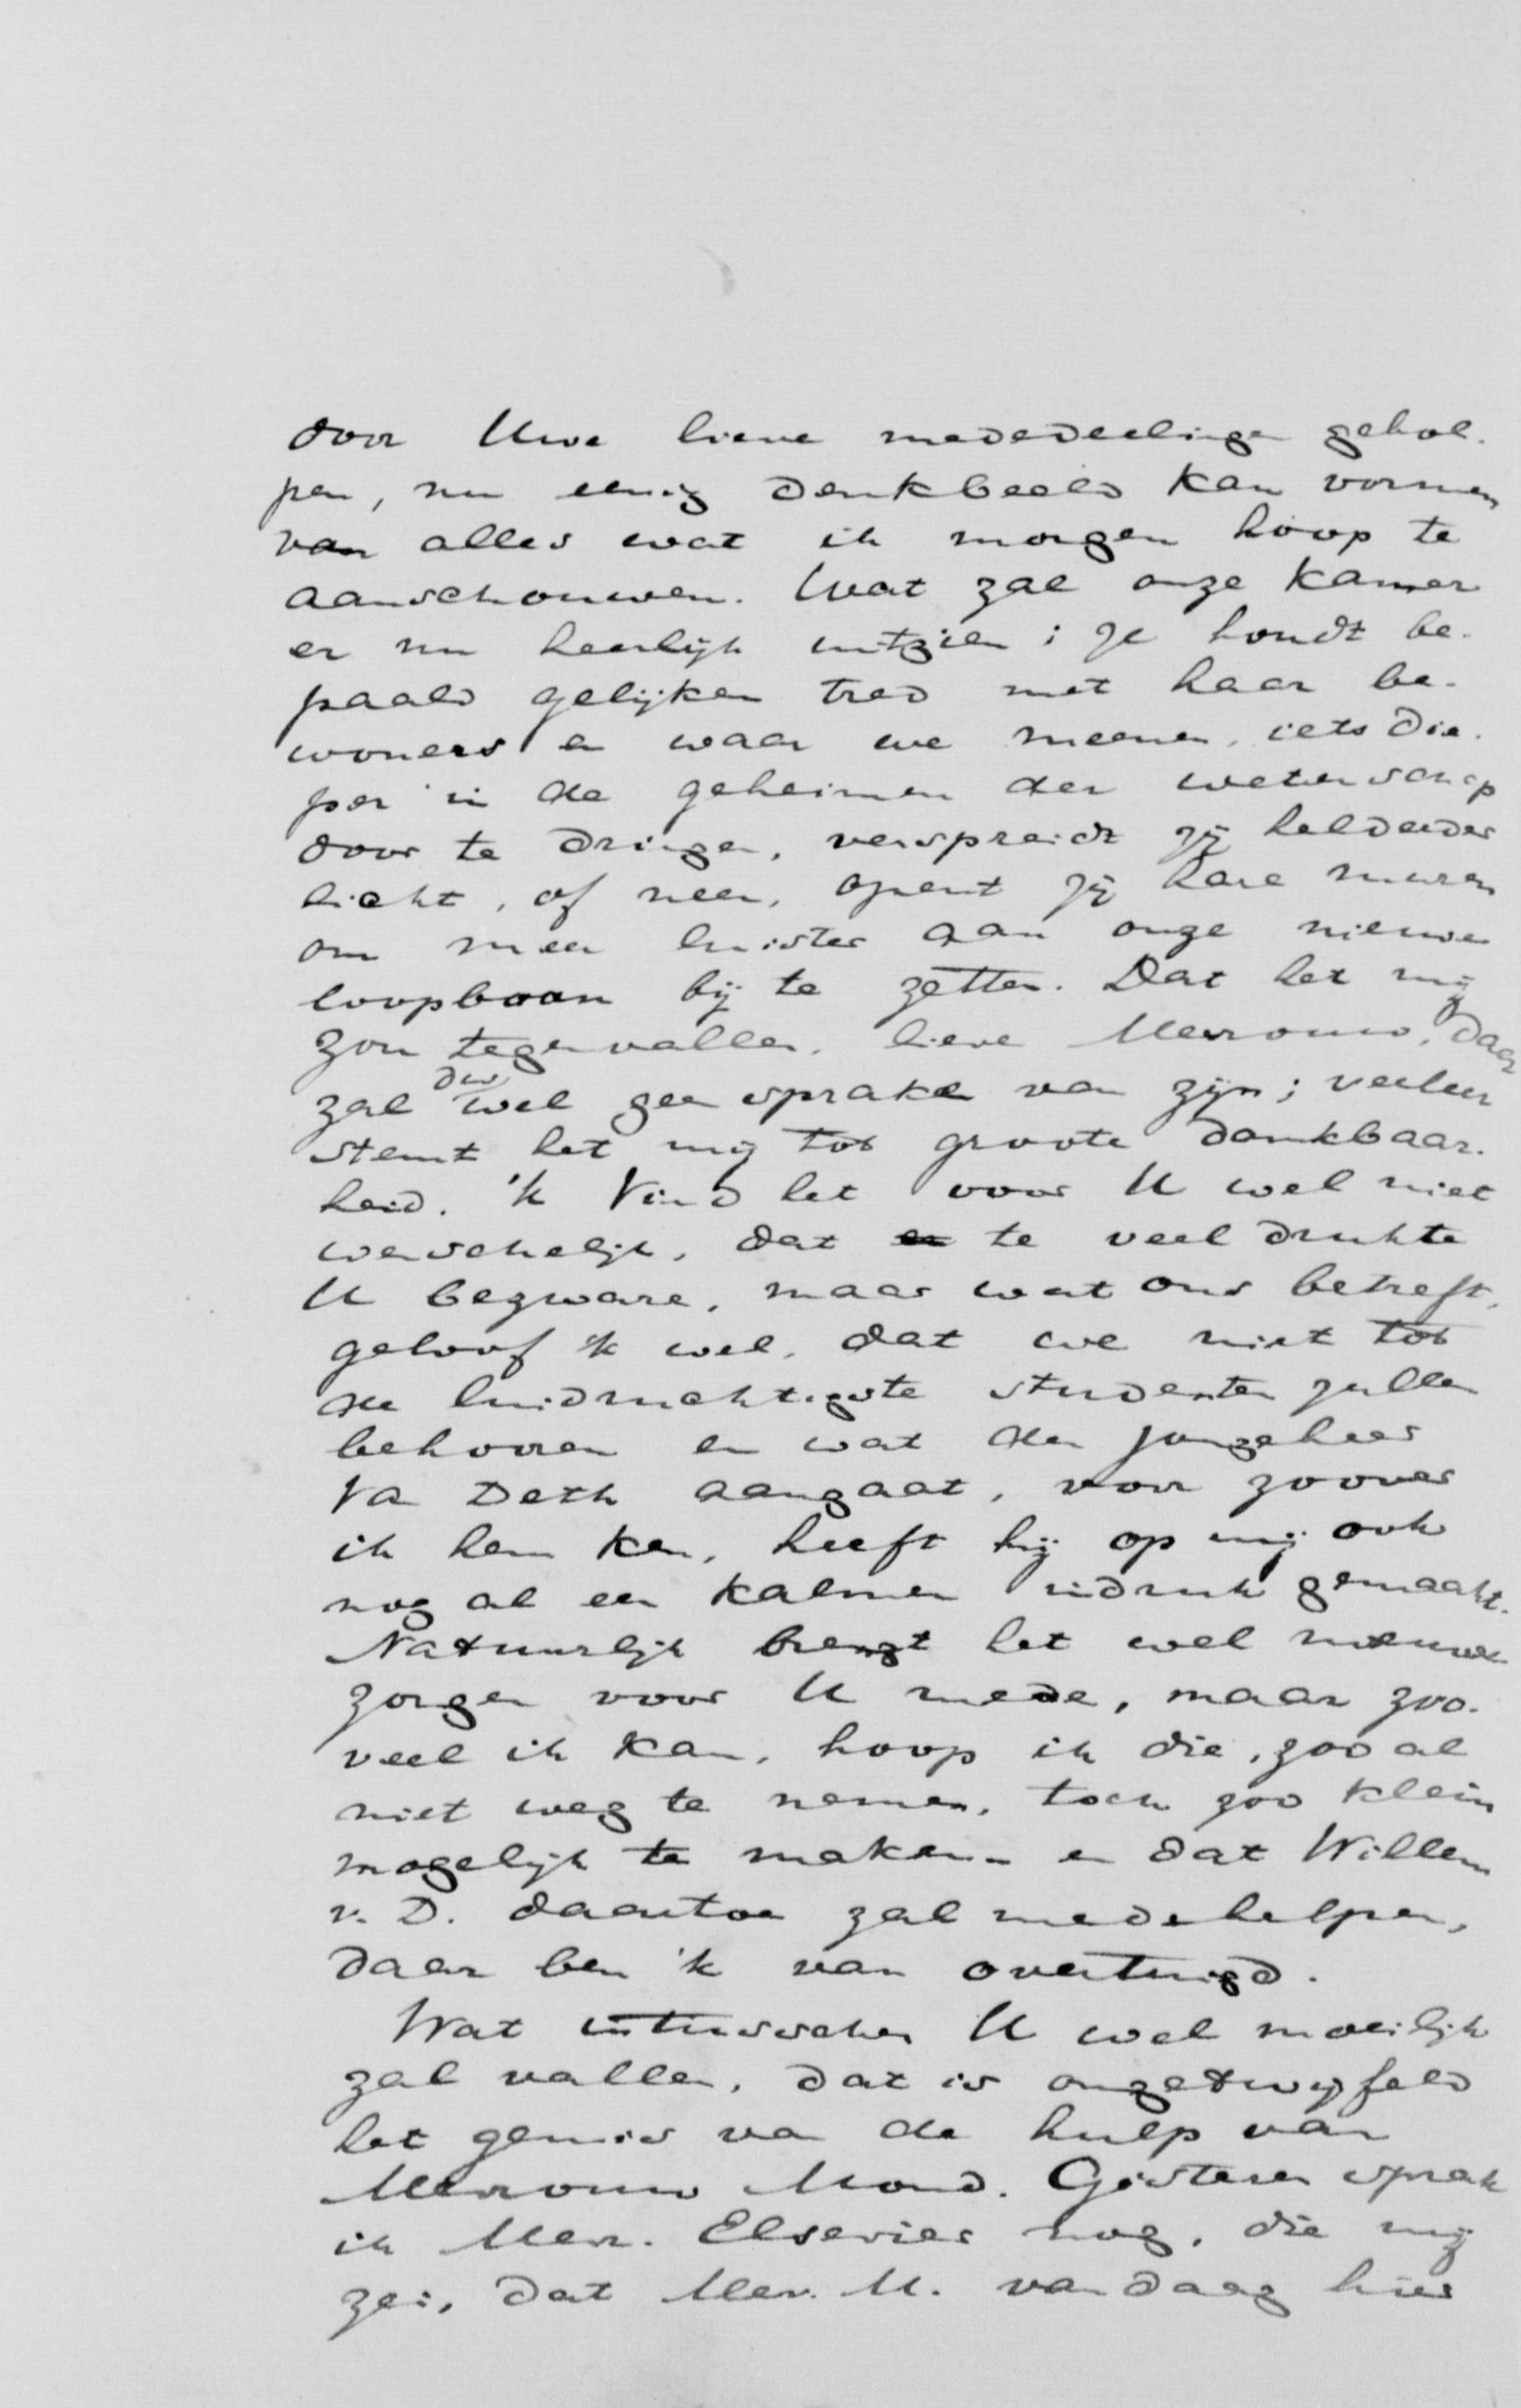 door Uwe lieve mededeelingen gehol-
pen, nu eenig denkbeeld kan vormen
van alles wat ik morgen hoop te
aanschouwen. Wat zal onze kamer
er nu heerlijk uitzien; ze houdt be-
paald gelijken tred met haar be-
woners en waar we meenen, iets die-
per in de geheimen der wetenschap
door te dringen, verspreidt zij helderder
licht, of neen, opent zij hare muren
om meer luister aan onze nieuwe
loopbaan bij te zetten. Dat het mij
zou tegenvallen, lieve Mevrouw, daar
zal dus wel geen sprake van zijn; veeleer
stemt het mij tot groote dankbaar-
heid. 'k Vind het voor U wel niet
wenschelijk, dat te veel drukte
U bezware, maar wat ons betreft,
geloof 'k wel, dat we niet tot
de luidruchtigste studenten zullen
behooren en wat den jongeheer
Van Deth aangaat, voor zoover
ik hem ken, heeft hij op mij ook
nog al een kalmen indruk gemaakt.
Natuurlijk brengt het wel nieuwe
zorgen voor U mede, maar zoo-
veel ik kan, hoop ik die, zoo al
niet weg te nemen, toch zoo klein
mogelijk te maken - en dat Willem
v. D. daartoe zal medehelpen,
daar ben 'k van overtuigd.
Wat intusschen U wel moeilijk
zal vallen, dat is ongetwijfeld
het gemis van de hulp van
Mevrouw Mond. Gisteren sprak
ik Mevr. Elsevier nog, die mij
zei, dat Mev. M. vandaag hier